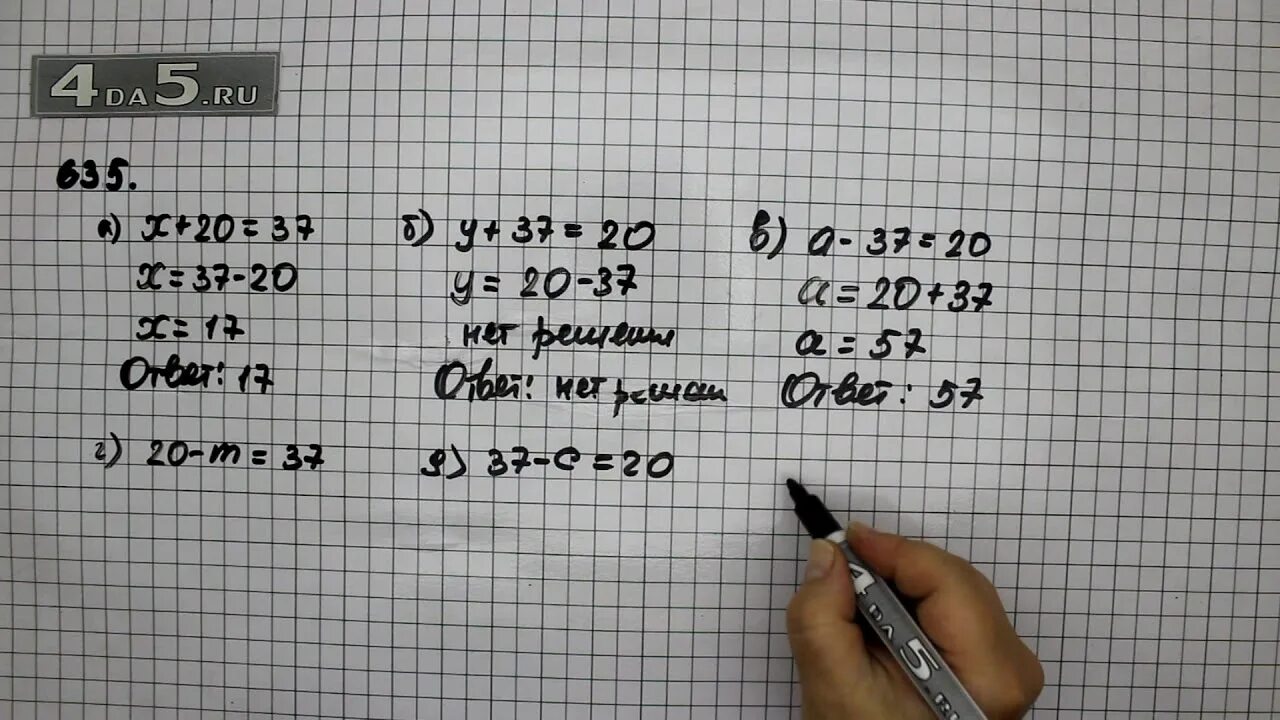 4DA5.RU
635.
а) x+20=37
x=37-20
x=17
Ответ: 17
б) y+37=20
y=20-37
нет решения
Ответ: нет
в) a-37=20
a=20+37
a=57
Ответ: 57
г) 20-m=37
д) 37-c=20
4DA5.RU